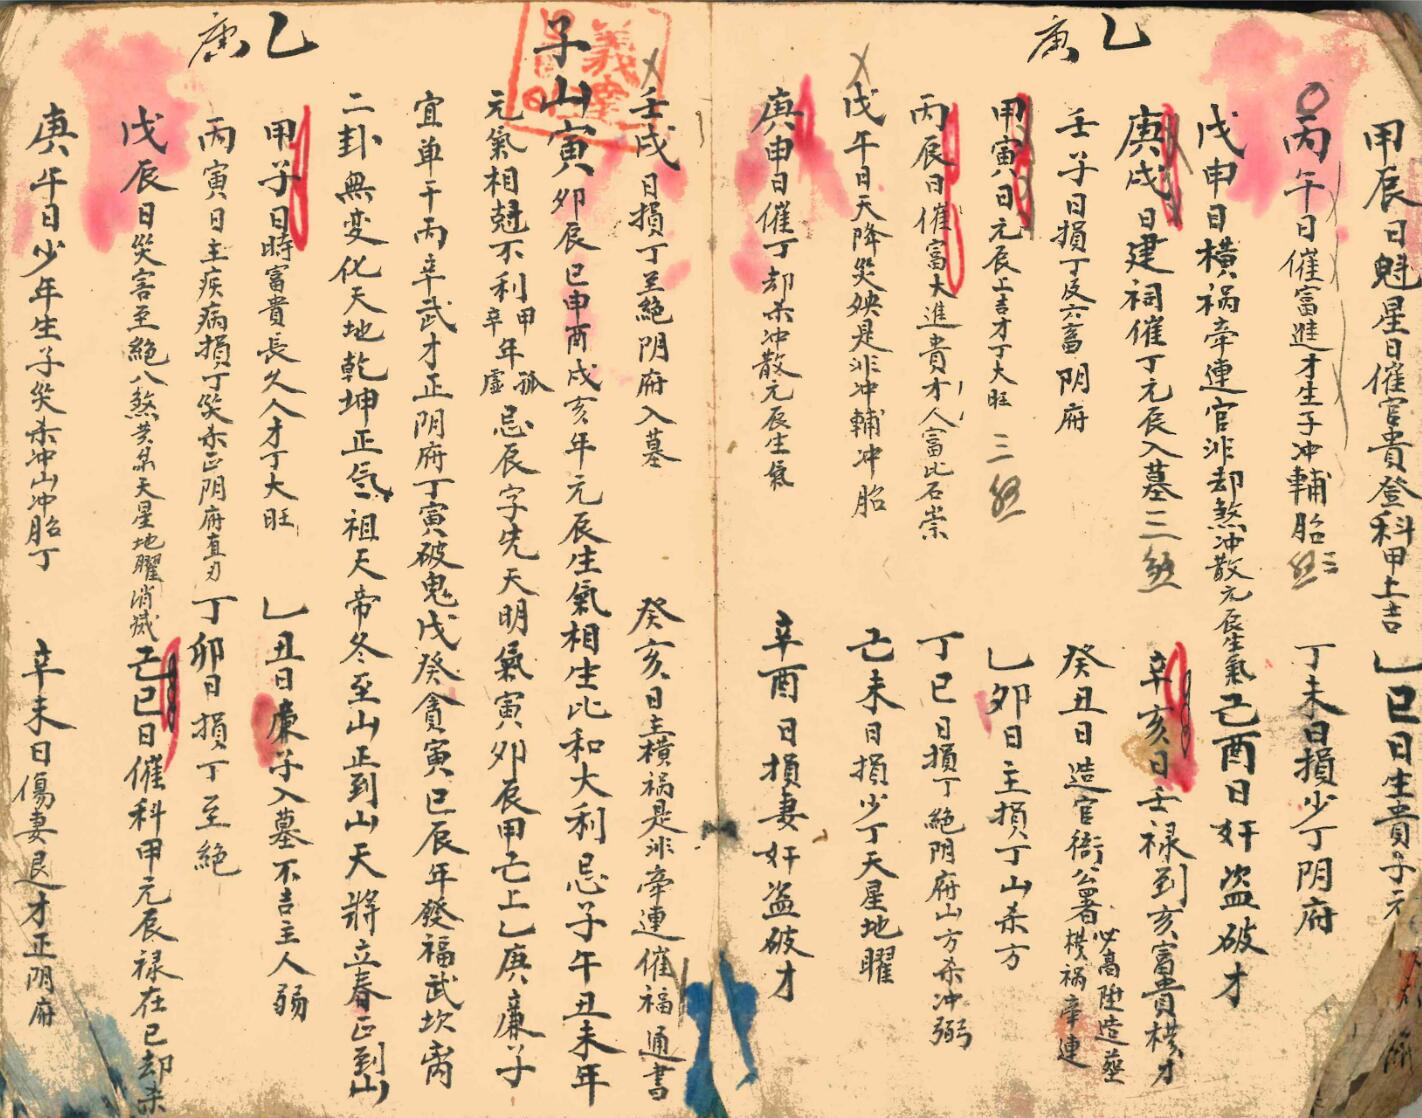 乙庚
甲辰日魁星日催官貴登科甲上吉 乙巳日生貴子元
丙午日催富進才生子冲輔胎 丁未日損少丁阴府
戊申日横祸牵連官非却煞冲散元辰生氣 己酉日奸盗破才
庚戌日建祠催丁元辰入墓三煞 辛亥日壬禄到亥富貴横才
壬子日損丁及六畜阴府 癸丑日造官衙公署必高陞造葬横祸牵連
甲寅日元辰上吉才丁大旺 三煞 乙卯日主損丁山杀方
丙辰日催富大進貴才人富比石崇 丁巳日損丁絶阴府山方杀冲弼
戊午日天降災殃是非冲輔冲胎 己未日損少丁天星地曜
庚申日催丁却杀冲散元辰生氣 辛酉日損妻奸盗破才
壬戌日損丁至絕阴府入墓 癸亥日主横祸是非牵連催福通書
子山寅卯辰巳申酉戌亥年元辰生氣相生比和大利忌子午丑未年
元氣相尅不利甲辛年孤虛忌辰字先天明氣寅卯辰甲亡上乙庚廉子
宜单干丙辛武才正阴府丁寅破鬼戊癸貪寅巳辰年發福武坎离
二卦無变化天地乾坤正氣祖天帝冬至山正到山天將立春正到山
乙庚
甲子日時富貴長久人才丁大旺 乙丑日廉子入墓不吉主人弱
丙寅日主疾病損丁災杀正阴府直刃 丁卯日損丁至絕
戊辰日災害至絕八煞黄泉天星地曜消滅 己巳日催科甲元辰禄在巳却杀
庚午日少年生子災杀冲山冲胎丁 辛未日傷妻退才正阴府